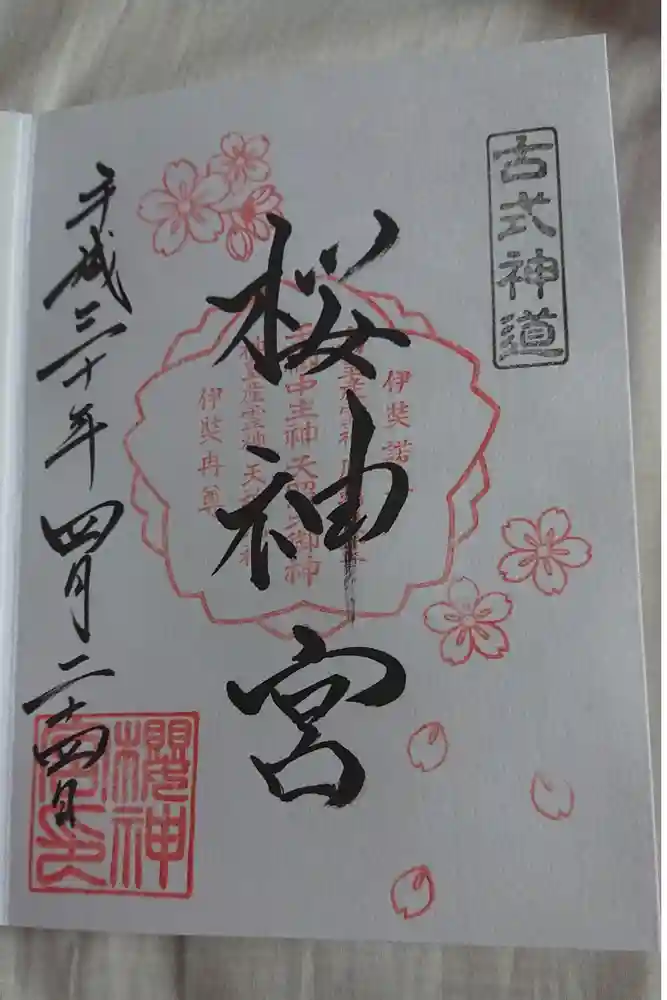 古式神道
伊奘諾
天照大御神
桜神宮
伊奘冉尊
平成三十年四月二十四日
櫻神
宮印